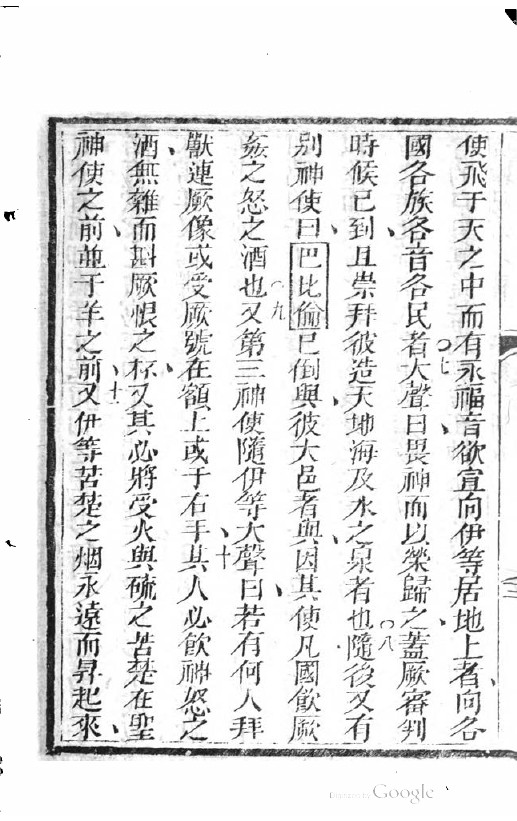 使飛于天之中而有永福音欲宣向伊等居地上者向各
國各族各音各民者七大聲曰畏神而以榮歸之蓋厥審判
時候已到且崇拜彼造天地海及水之泉者也八隨後又有
別神使曰巴比倫已倒與彼大邑者與因其使凡國飲厥
姦之怒之酒也九又第三神使隨伊等大聲曰若有何人拜
獸連厥像或受厥號在額上或于右手十其人必飲神怒之
酒無雜而斟厥恨之杯又其必將受火與硫之苦楚在聖
神使之前並于羊之前十一又伊等苦楚之烟永遠而昇起來
Digitized by Google